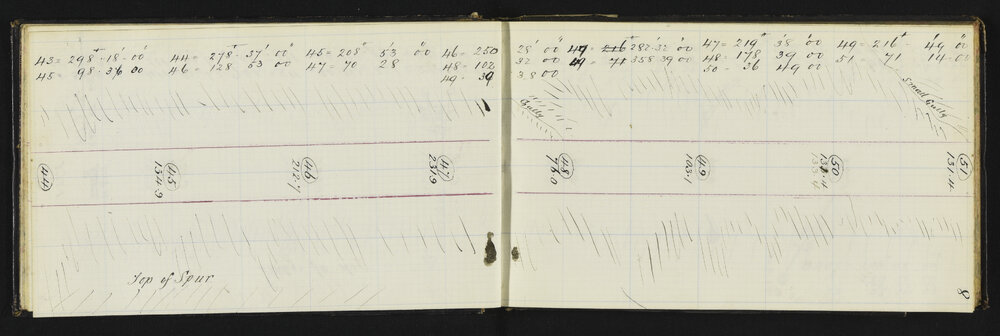 43= 298° 18' 00"
45= 98. 36 00
44= 278° 37' 00"
46= 128. 53 00
45= 208° 53' 00
47= 70 28
46= 250
48= 102
49= 39
28' 00"
32 00
38 00
282. 32' 00"
358 39 00
47= 219° 38' 00
48= 178 39 00
50= 36 49 00
49= 216° 49' 00"
51= 71 14. 00
Gully
Small Gully
44
45
134.9
46
212.7
47
231.9
48
73.0
49
103.1
50
51
131.4
Top of Spur
8